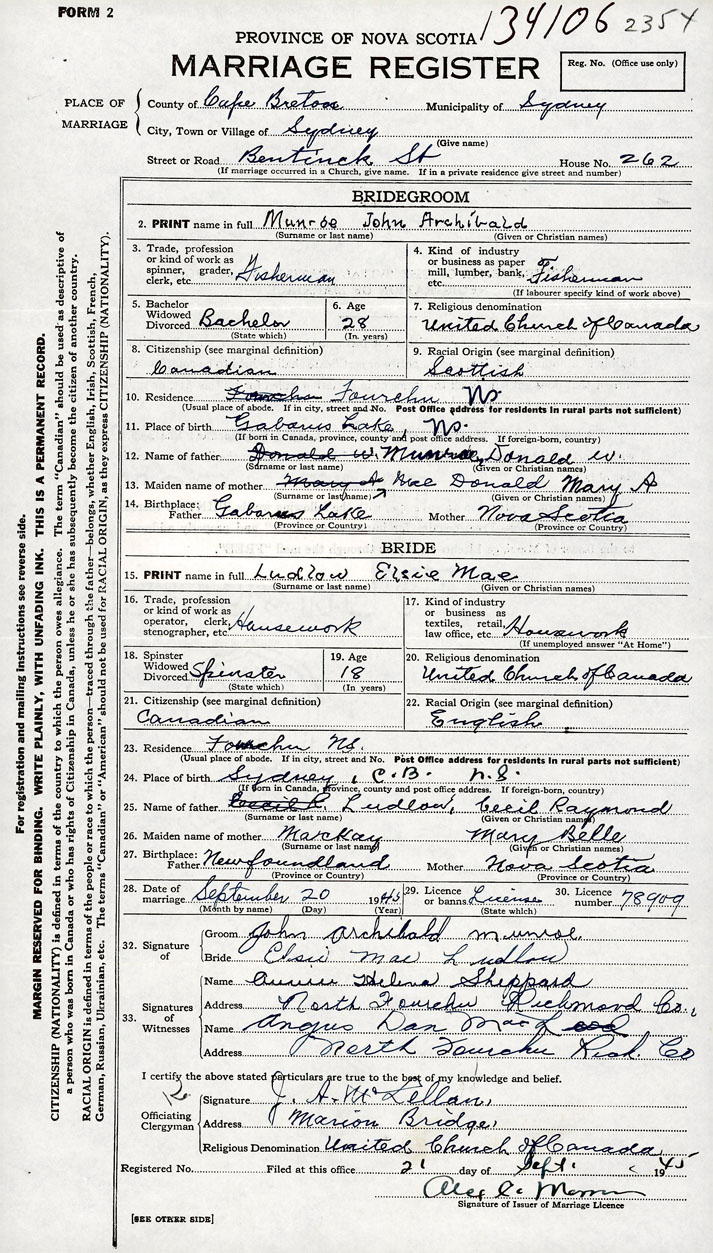 FORM 2
134106 2354
PROVINCE OF NOVA SCOTIA
MARRIAGE REGISTER
Reg. No. (Office use only)
PLACE OF MARRIAGE
County of Cape Breton Municipality of Sydney
City, Town or Village of Sydney
(Give name)
Street or Road Bentinck St House No. 262
(If marriage occurred in a Church, give name. If in a private residence give street and number)
BRIDEGROOM
2. PRINT name in full Munroe John Archibald
(Surname or last name) (Given or Christian names)
3. Trade, profession or kind of work as spinner, grader, clerk, etc. Fisherman
4. Kind of industry or business as paper mill, lumber, bank, etc. Fisherman
(If labourer specify kind of work above)
5. Bachelor Widowed Divorced Bachelor
(State which)
6. Age 28
(In years)
7. Religious denomination
United Church of Canada
8. Citizenship (see marginal definition)
Canadian
9. Racial Origin (see marginal definition)
Scottish
10. Residence Fourchu NS.
(Usual place of abode. If in city, street and No. Post Office address for residents in rural parts not sufficient)
11. Place of birth Gabarus Lake, NS.
(If born in Canada, province, county and post office address. If foreign-born, country)
12. Name of father Donald W. Munroe, Donald W.
(Surname or last name) (Given or Christian names)
13. Maiden name of mother Mary A Mac Donald Mary A
(Surname or last name) (Given or Christian names)
14. Birthplace: Father Gabarus Lake Mother Nova Scotia
(Province or Country) (Province or Country)
BRIDE
15. PRINT name in full Ludlow Elsie Mae
(Surname or last name) (Given or Christian names)
16. Trade, profession or kind of work as operator, clerk, stenographer, etc. Housework
17. Kind of industry or business as textiles, retail, law office, etc. Housework
(If unemployed answer "At Home")
18. Spinster Widowed Divorced Spinster
(State which)
19. Age 18
(In years)
20. Religious denomination
United Church of Canada
21. Citizenship (see marginal definition)
Canadian
22. Racial Origin (see marginal definition)
English
23. Residence Fourchu NS.
(Usual place of abode. If in city, street and No. Post Office address for residents in rural parts not sufficient)
24. Place of birth Sydney, C.B. N.S.
(If born in Canada, province, county and post office address. If foreign-born, country)
25. Name of father Cecil R. Ludlow, Cecil Raymond
(Surname or last name) (Given or Christian names)
26. Maiden name of mother MacKay Mary Belle
(Surname or last name) (Given or Christian names)
27. Birthplace: Father Newfoundland Mother Nova Scotia
(Province or Country) (Province or Country)
28. Date of marriage September 20 1945
(Month by name) (Day) (Year)
29. Licence or banns License
(State which)
30. Licence number 78909
32. Signature of
Groom John Archibald Munroe
Bride Elsie Mae Ludlow
33. Signatures of Witnesses
Name Annie Helena Sheppard
Address North Fourchu Richmond Co.,
Name Angus Dan
Address North Fourchu Rich. Co
I certify the above stated particulars are true to the best of my knowledge and belief.
Officiating Clergyman
Signature J. A. McLellan,
Address Marion Bridge,
Religious Denomination United Church of Canada
Registered No. Filed at this office 21 day of Sept. 1945
Signature of Issuer of Marriage Licence
[SEE OTHER SIDE]
For registration and mailing instructions see reverse side.
MARGIN RESERVED FOR BINDING. WRITE PLAINLY, WITH UNFADING INK. THIS IS A PERMANENT RECORD.
CITIZENSHIP (NATIONALITY) is defined in terms of the country to which the person owes allegiance. The term "Canadian" should be used as descriptive of
a person who was born in Canada or who has rights of Citizenship in Canada, unless he or she has subsequently become the citizen of another country.
RACIAL ORIGIN is defined in terms of the people or race to which the person—traced through the father—belongs, whether English, Irish, Scottish, French,
German, Russian, Ukrainian, etc. The terms "Canadian" or "American" should not be used for RACIAL ORIGIN, as they express CITIZENSHIP (NATIONALITY).